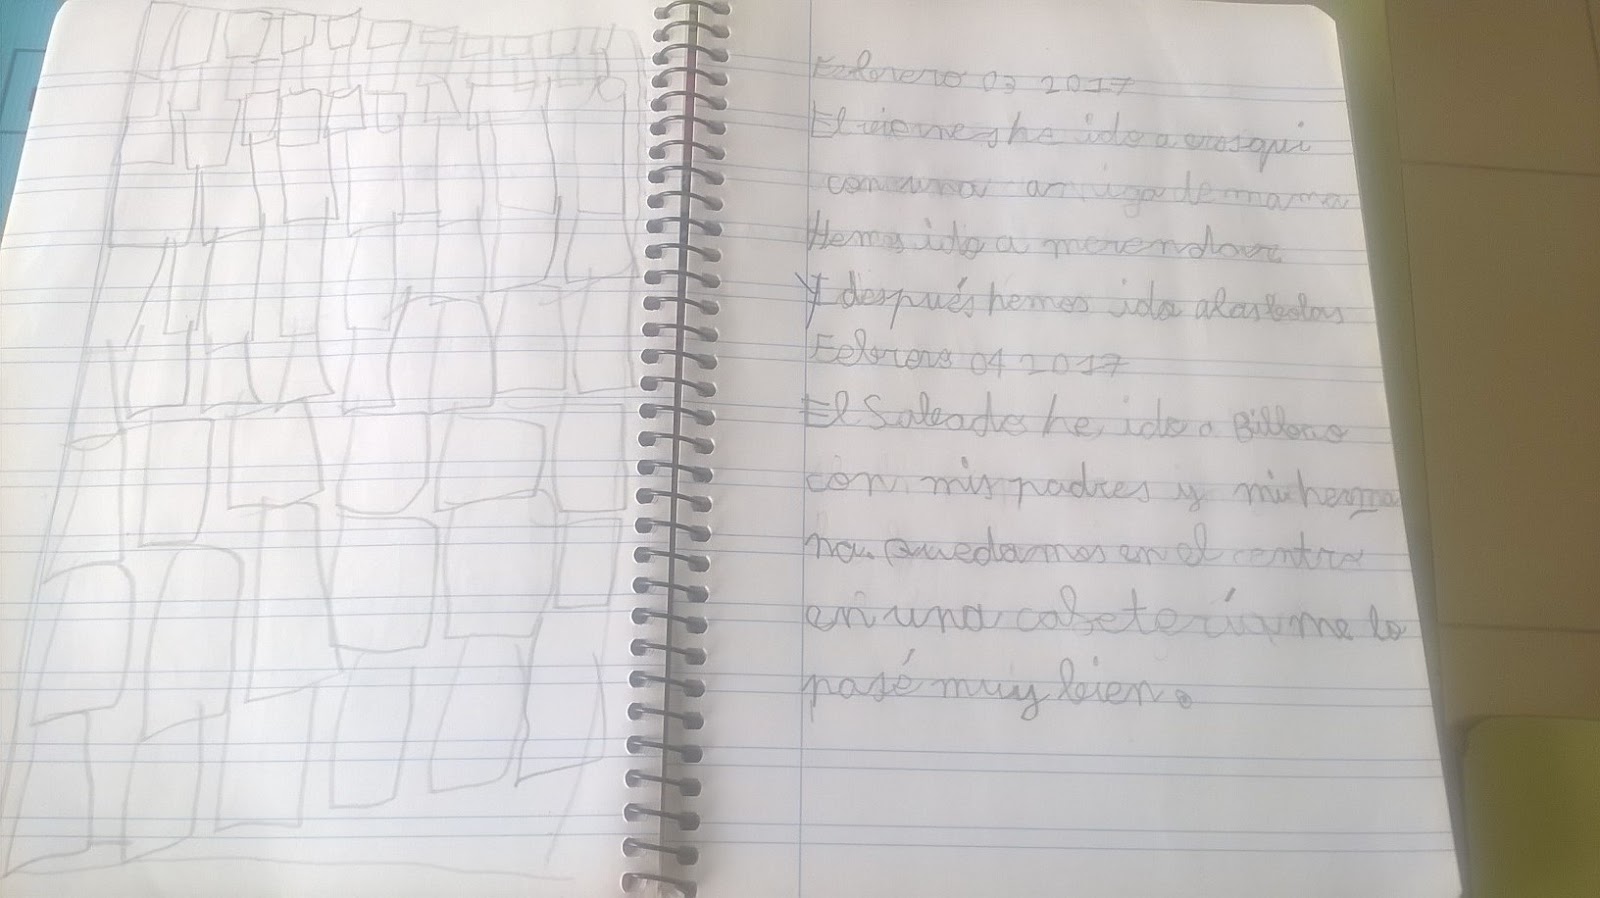 Febrero 03 2017
El viernes he ido a erosqui
con una amiga de mama
Hemos ido a merendar
Y después hemos ido a las
Febrero 04 2017
El Sabado he ido a Bilbao
con mis padres y mi herma
na. Quedamos en el centro
en una cafetería y me lo
pasé muy bien.